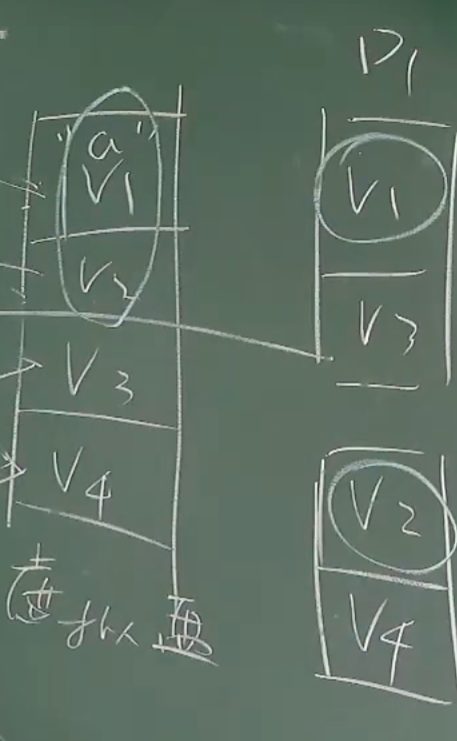 "a"
V1
V2
V3
V4
P1
V1
V3
V2
V4